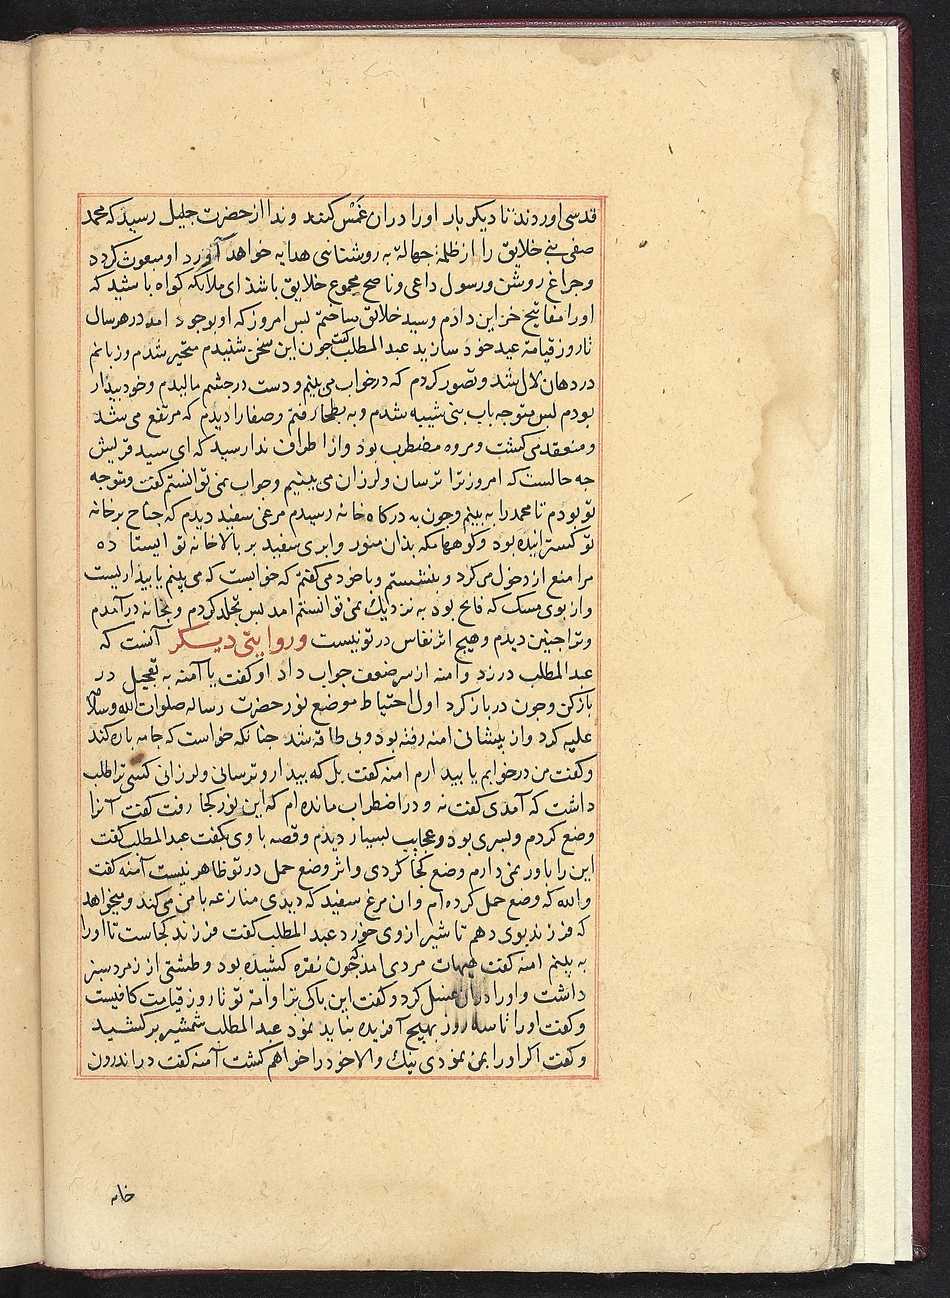 قدسی اوردند تا دیکر بار اورا دران غمس کنند وندا از حضرت جلیل رسید که محمد
صفی نبی خلایق را از ظلمة جهالة به روشنایی هدایه خواهد آورد او مبعوث کردد
وچراغ روشن ورسول داعی وناصح مجموع خلایق باشد ای ملائکه کواه باشید که
اورا مفاتیح خزاین دادم وسید خلائق ساختم پس امروز که او بوجود امد در هر سال
تا روز قیامة عید خود سازید عبد المطلب کفت چون این سخن شنیدم متحیر شدم وزبانم
در دهان لال شد وتصور کردم که در خواب می بینم ودست در چشم مالیدم وخود بیدار
بودم پس متوجه باب بنی شیبه شدم وبه بطحا رفتم وصفا را دیدم که مرتفع می شد
ومنعقد می کشت ومروه مضطرب بود واز اطراف ندا رسید که ای سید قریش
چه حالست که امروز ترا ترسان ولرزان می بینیم وجواب نمی توانستم کفت ومتوجه
تو بودم تا محمد را به بینم وچون به درکاه خانه رسیدم مرغی سفید دیدم که جناح بر خانه
تو کسترانیده بود وکوههای مکه بدان منور وابری سفید بر بالا خانه تو ایستا ده
مرا منع از دخول می کرد وبنشستم وبا خود می کفتم که خوابست که می بینم یا بیداریست
واز بوی مسک که فایح بود به نزدیک نمی توانستم امد پس تجلد کردم وبخانه درآمدم
وترا چنین دیدم وهیچ اثر نفاس در تو نیست وروایتی دیـکر آنست که
عبد المطلب در زد وامنه از سر ضعف جواب داد او کفت یا آمنه به تعجیل در
باز کن وچون در باز کرد اول احتیاط موضع نور حضرت رساله صلوات الله وسلامه
علیه کرد واز پیشانی امنه رفته بود وبی طاقه شد چنانکه خواست که جامه پاره کند
وکفت من در خوابم یا بیدارم امنه کفت بل که بیدار وترسانی ولرزان کسی ترا طلب
داشت که آمدی کفت نه ودر اضطراب مانده ام که این نور کجا رفت کفت آنرا
وضع کردم وپسری بود وعجایب بسیار دیدم وقصه با وی بکفت عبد المطلب کفت
این را باور نمی دارم وضع کجا کردی واثر وضع حمل در تو ظاهر نیست آمنه کفت
والله که وضع حمل کرده ام وان مرغ سفید که دیدی منازعه با من می کند ومیخواهد
که فرزند بوی دهم تا شیر از وی خورد عبد المطلب کفت فرزند کجاست تا اورا
به بینم امنه کفت هیهات مردی امد کچون نقره کشیده بود وطشتی از زمرد سبز
داشت واورا دران غسل کرد وکفت این پاکی ترا وامة تو تا روز قیامت کافیست
وکفت اورا تا سه روز بهیچ آفریده نباید نمود عبد المطلب شمشیر برکشید
وکفت اکر اورا بمن نمودی نیک والا خود را خواهم کشت آمنه کفت در اندرون
خانه